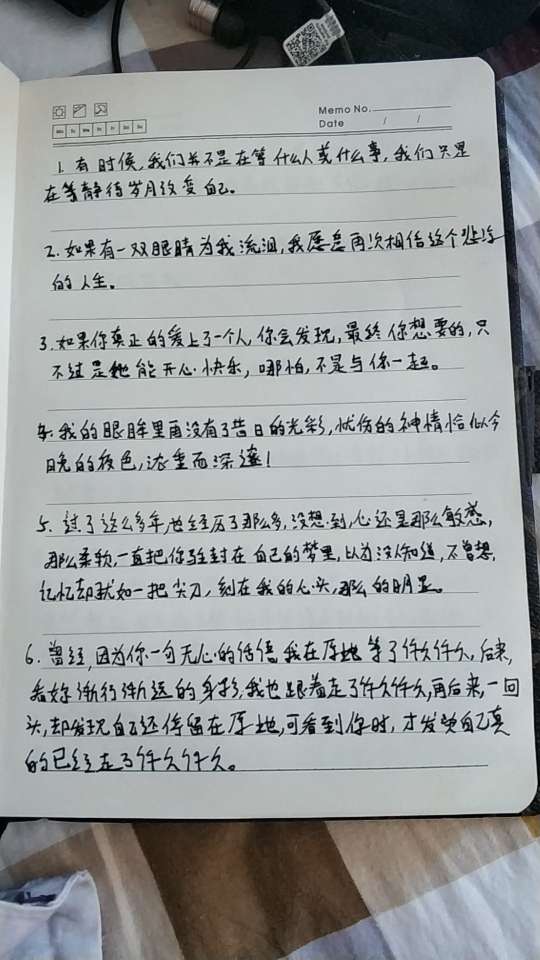 Memo No.
Date / /
Mo Tu We Th Fr Sa Su
1. 有时候,我们并不是在等什么人或什么事,我们只是
在等静待岁月改变自己。
2. 如果有一双眼睛为我流泪,我愿意再次相信这个悲伤
的人生。
3. 如果你真正的爱上了一个人,你会发现,最终你想要的,只
不过是她能开心快乐,哪怕,不是与你一起。
4. 我的眼眸里再没有了昔日的光彩,忧伤的神情恰似今
晚的夜色,浓重而深邃!
5. 过了这么多年,也经历了那么多,没想到,心还是那么敏感,
那么柔软,一直把你尘封在自己的梦里,以为没人知道,不曾想,
记忆却犹如一把尖刀,刻在我的心头,那么的明显。
6. 曾经,因为你一句无心的话语,我在原地等了许久许久,后来,
看妳渐行渐远的身影,我也跟着走了许久许久,再后来,一回
头,却发现自己还停留在原地,可看到你时,才发觉自己真
的已经走了许久许久。